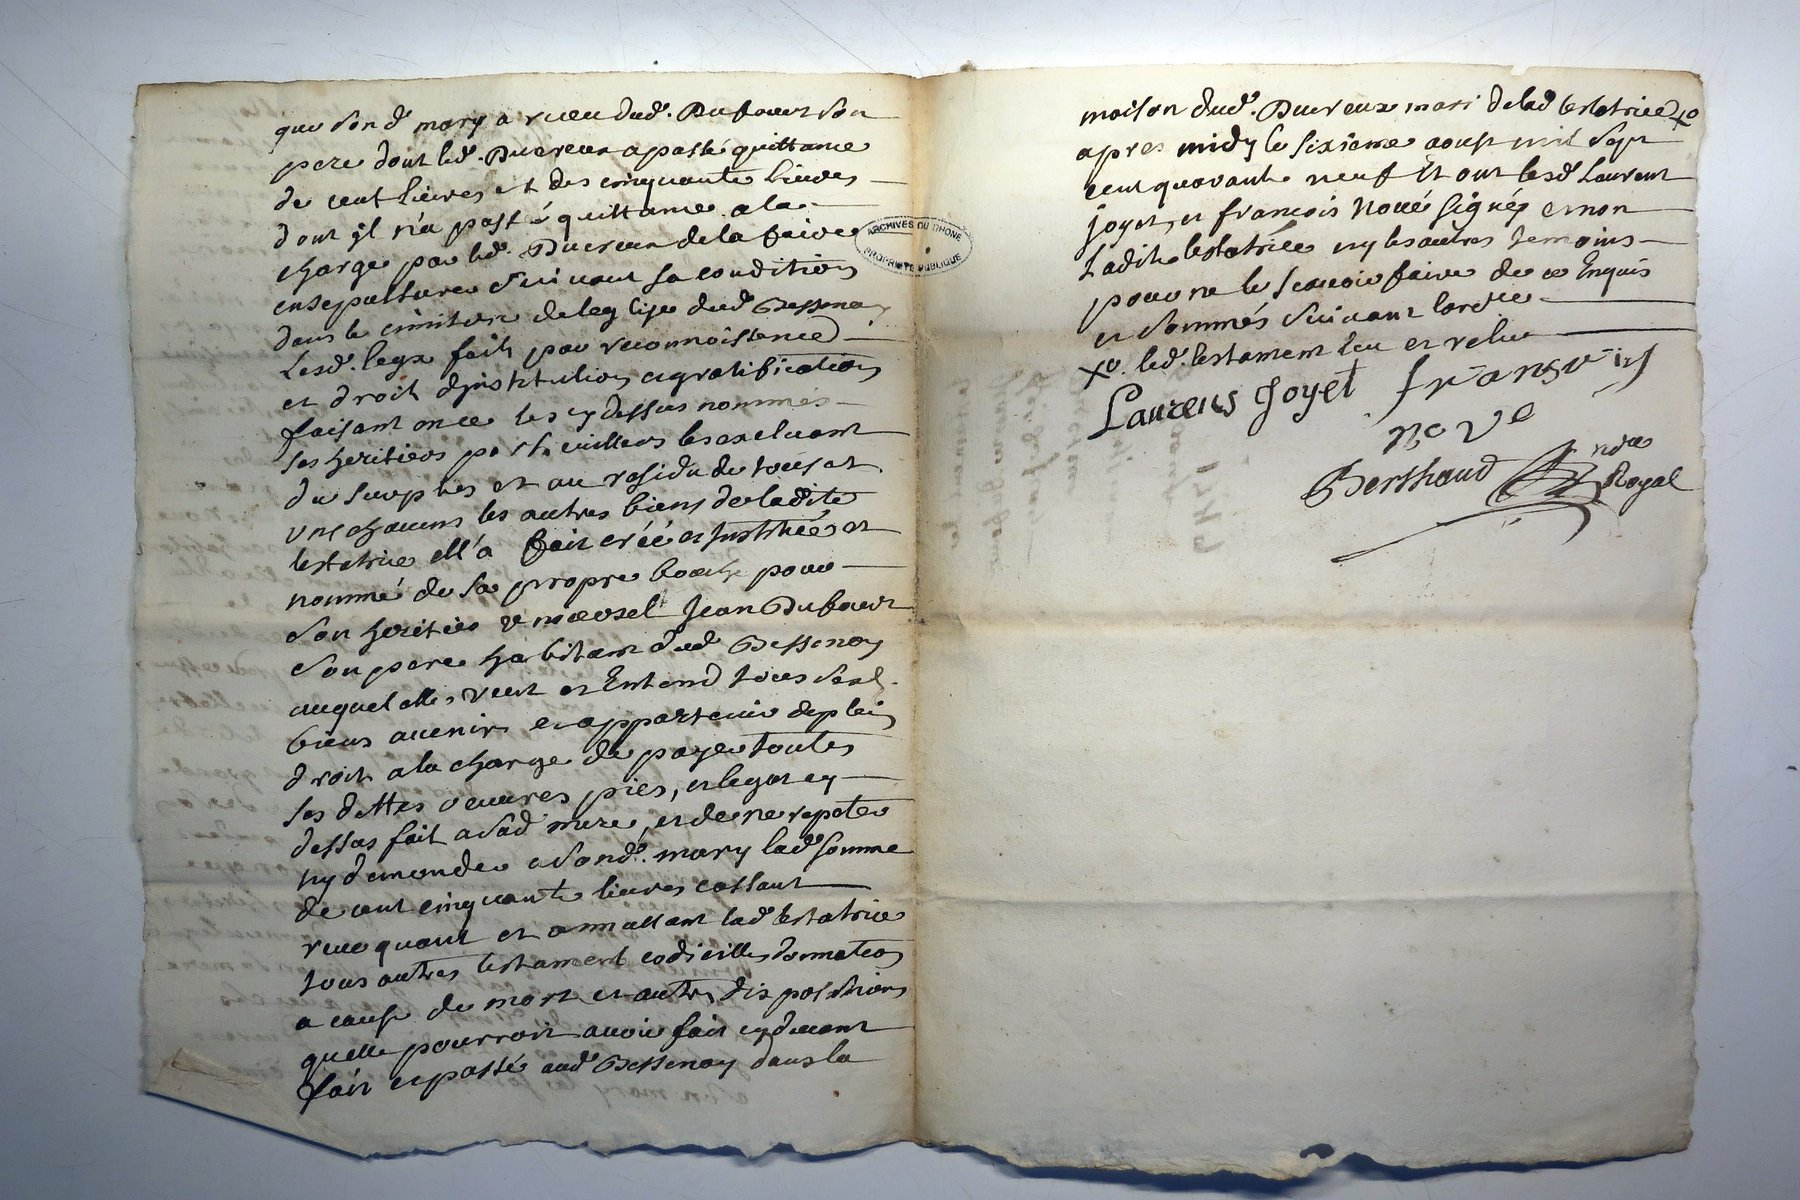 que sond. mary a receu dud. Dufour son
pere dont led. Ducreux a passé quittance
de cent livres et des cinquante livres
dont il n'a passé quittance a la
charge par led. Ducreux de la faire
ensepulturer suivant sa condition
dans le cimitiere de leglise dud. Bessenay
Lesd. legs faits par reconnoissance
et droit d'institution et gratification
faisant avec les cy dessus nommés
ses heritiers particuilliers les excluant
du surplus et au residu de tous et
uns chacuns les autres biens de ladite
testatrice ell'a fait créé et Institué et
nommé de sa propre bouche pour
son heritier universel Jean Dufour
son pere habitant dud. Bessenay
auquel elle veut et Entend tous sesd.
biens avenir et appartenir de plein
droit a la charge de payer toutes
ses dettes oeuvres pies, et legat cy
dessus fait a sad. mere, et de ne repeter
ny demander a sond. mary lad. somme
de cent cinquante livres cassant
revoquant et annullant lad. testatrice
tous autres testament codicilles donnation
a cause de mort et autres dispositions
quelle pourroit avoir fait cy devant
fait et passé aud. Bessenay dans la
ARCHIVES DU RHONE
PROPRIETE PUBLIQUE
maison dud. Ducreux mari de lad. testatrice xo
apres midy le sixieme aoust mil sept
cent quarante neuf Et ont lesd. Laurent
Joyet, et francois Nové signés et non
Ladite testatrice ny les autres temoins
pour ne le scavoir faire de ce Enquis
et sommés suivant lord.ce
xo. led. testament leu et relu
Laurens Joyet fransois
Nove
Berthaud nore
Royal